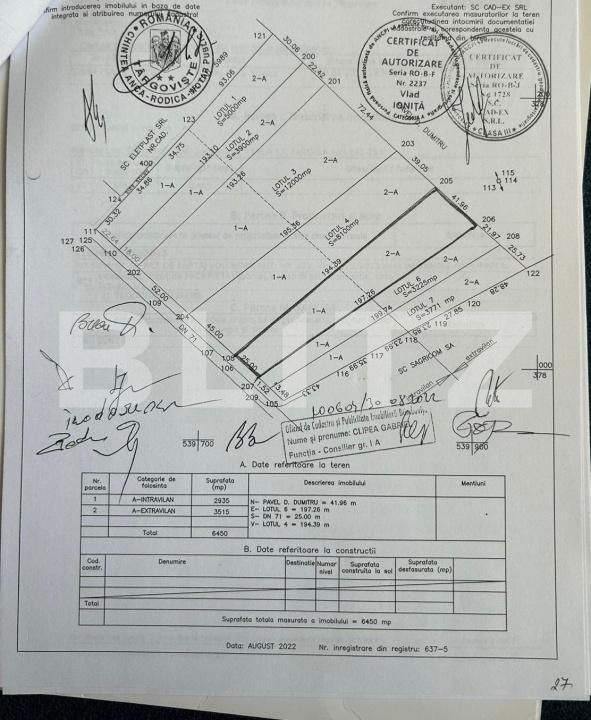 Executant: SC CAD-EX SRL
firm introducerea imobilului in baza de date
Confirm executarea masuratorilor la teren
integrata si atribuirea
ROMANIA
TARGOVISTE
CERTIFICAT
DE
AUTORIZARE
Seria RO-B-F
Nr. 2237
Vlad
IONIȚĂ
CATEGORIA A
CERTIFICAT
DE
AUTORIZARE
Seria RO-B-J
S.C.
CAD-EX
S.R.L.
CLASA III
378
121
30.06
200
22.42
201
72.44
DUMITRU
203
39.05
205
41.96
206
21.97
208
25.73
122
115
114
113
93.06
LOTUL 1
S=5000mp
LOTUL 2
S=3900mp
LOTUL 3
S=12000mp
LOTUL 4
S=8100mp
LOTUL 6
S=3225mp
LOTUL 7
S=3771 mp
SC ELETPLAST SRL
NR.CAD.
400
123
34.75
34.86
124
30.32
111
127
125
126
22.64
18.00
110
202
193.10
193.26
195.36
194.39
197.26
199.74
2-A
2-A
2-A
2-A
2-A
2-A
2-A
1-A
1-A
1-A
1-A
1-A
1-A
1-A
52.00
109
204
45.00
DN 71
107
108
106
25.00
207
11.52
209
13.48
105
43.33
116
35.99
117
23.99
118
23.95
119
27.85
120
48.28
SC SAGRICOM SA
extravilan
intravilan
000
378
BLITZ
Oficiul de Cadastru si Publicitate Imobiliara
Nume și prenume: CLIPEA GABRIEL
Funcția - Consilier gr. I A
539 700
539 900
A. Date referitoare la teren
Nr. parcela Categorie de folosinta Suprafata (mp) Descrierea imobilului Mentiuni
1 A-INTRAVILAN 2935 N- PAVEL D. DUMITRU = 41.96 m
2 A-EXTRAVILAN 3515 E- LOTUL 6 = 197.26 m
S- DN 71 = 25.00 m
V- LOTUL 4 = 194.39 m
Total 6450
B. Date referitoare la constructii
Cod. constr. Denumire Destinatie Numar nivel Suprafata construita la sol Suprafata desfasurata (mp)
Total
Suprafata totala masurata a imobilului = 6450 mp
Data: AUGUST 2022 Nr. inregistrare din registru: 637-5
27